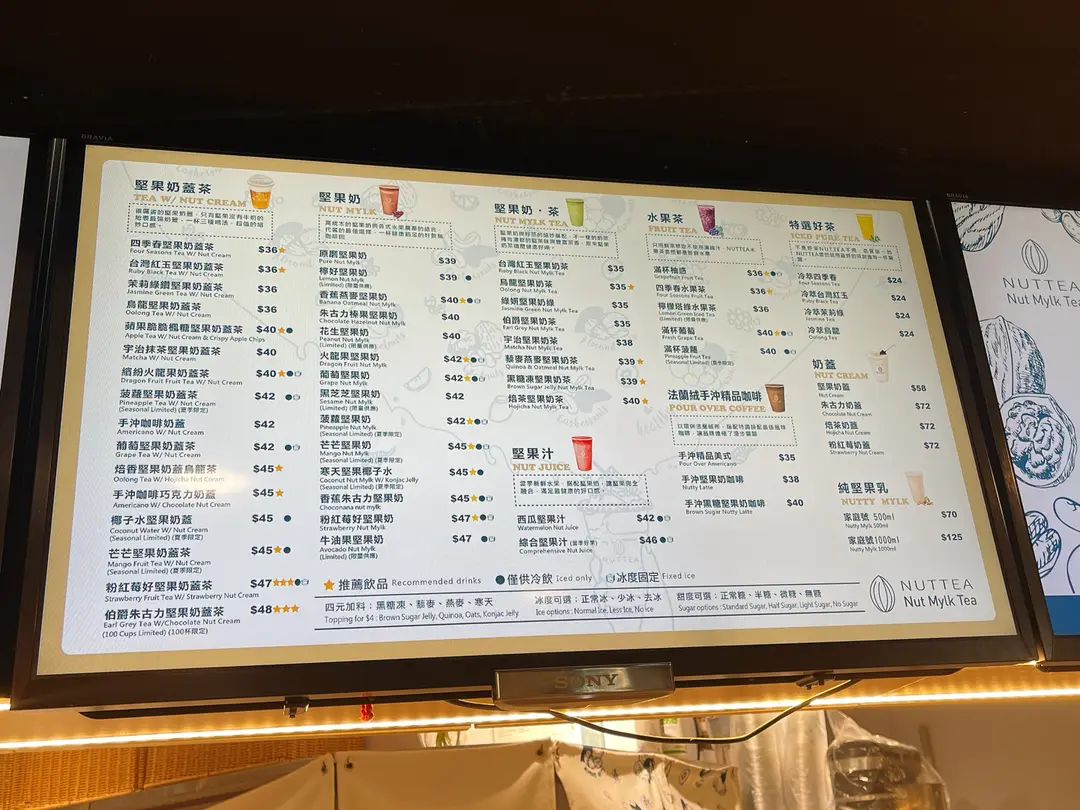 BRAVIA
堅果奶蓋茶
TEA W/ NUT CREAM
四季春堅果奶蓋茶 $36★
Four Seasons Tea W/ Nut Cream
台灣紅玉堅果奶蓋茶 $36★
Ruby Black Tea W/ Nut Cream
茉莉綠鑽堅果奶蓋茶 $36
Jasmine Green Tea W/ Nut Cream
烏龍堅果奶蓋茶 $36
Oolong Tea W/ Nut Cream
蘋果脆脆楓糖堅果奶蓋茶 $40★●
Apple Tea W/ Nut Cream & Crispy Apple Chips
宇治抹茶堅果奶蓋茶 $40
Matcha W/ Nut Cream
繽紛火龍果堅果奶蓋茶 $40★●
Dragon Fruit Fruit Tea W/ Nut Cream
菠蘿堅果奶蓋茶 $42 ●
Pineapple Tea W/ Nut Cream
(Seasonal Limited) (夏季限定)
手沖咖啡堅果奶蓋 $42
Americano W/ Nut Cream
葡萄堅果奶蓋茶 $42 ●
Grape Tea W/ Nut Cream
焙香堅果奶蓋烏龍茶 $45★
Oolong Tea W/ Hojicha Nut Cream
手沖咖啡巧克力奶蓋 $45★
Americano W/ Chocolate Nut Cream
椰子水堅果奶蓋 $45 ●
Coconut Water W/ Nut Cream
(Seasonal Limited) (夏季限定)
芒芒堅果奶蓋茶 $45★●
Mango Fruit Tea W/ Nut Cream
(Seasonal Limited) (夏季限定)
粉紅莓好堅果奶蓋茶 $47★★★●
Strawberry Fruit Tea W/ Strawberry Nut Cream
伯爵朱古力堅果奶蓋茶 $48★★★
Earl Grey Tea W/Chocolate Nut Cream
(100 Cups Limited) (100杯限定)
堅果奶
NUT MYLK
原磨堅果奶 $39
Pure Nut Mylk
檸好堅果奶 $39 ●
Lemon Nut Mylk
(Limited) (限量供應)
香蕉燕麥堅果奶 $40★●
Banana Oatmeal Nut Mylk
朱古力榛果堅果奶 $40
Chocolate Hazelnut Nut Mylk
花生堅果奶 $40
Peanut Nut Mylk
(Limited) (限量供應)
火龍果堅果奶 $42★●
Dragon Fruit Nut Mylk
葡萄堅果奶 $42★●
Grape Nut Mylk
黑芝芝堅果奶 $42
Sesame Nut Mylk
(Limited) (限量供應)
菠蘿堅果奶 $42★●
Pineapple Nut Mylk
(Seasonal Limited) (夏季限定)
芒芒堅果奶 $45★●
Mango Nut Mylk
(Seasonal Limited) (夏季限定)
寒天堅果椰子水 $45★●
Coconut Nut Mylk W/ Konjac Jelly
(Seasonal Limited) (夏季限定)
香蕉朱古力堅果奶 $45★●
Choconana Nut mylk
粉紅莓好堅果奶 $47★●
Strawberry Nut Mylk
牛油果堅果奶 $47 ●
Avocado Nut Mylk
(Limited) (限量供應)
堅果奶·茶
NUT MYLK TEA
台灣紅玉堅果奶茶 $35
Ruby Black Nut Mylk Tea
烏龍堅果奶茶 $35★
Oolong Nut Mylk Tea
綠妍堅果奶綠 $35
Jasmine Green Nut Mylk Tea
伯爵堅果奶茶 $35
Earl Grey Nut Mylk Tea
宇治堅果奶茶 $38
Matcha Nut Mylk Tea
藜麥燕麥堅果奶茶 $39★
Quinoa & Oatmeal Nut Mylk Tea
黑糖凍堅果奶茶 $39★
Brown Sugar Jelly Nut Mylk Tea
焙茶堅果奶茶 $40★
Hojicha Nut Mylk Tea
堅果汁
NUT JUICE
西瓜堅果汁 $42●
Watermelon Nut Juice
綜合堅果汁 $46●
Comprehensive Nut Juice
水果茶
FRUIT TEA
滿杯柚惑 $36★●
Grapefruit Fruit Tea
四季春水果茶 $36★
Four Seasons Fruit Tea
檸檬搭綠水果茶 $36
Lemon Green Iced Tea
(Limited) (限量供應)
滿杯葡萄 $40★●
Fresh Grape Tea
滿杯菠蘿 $40 ●
Pineapple Fruit Tea
(Seasonal Limited) (夏季限定)
法蘭絨手沖精品咖啡
POUR OVER COFFEE
手沖精品美式 $35
Pour Over Americano
手沖堅果奶咖啡 $38
Nutty Latte
手沖黑糖堅果奶咖啡 $40
Brown Sugar Nutty Latte
特選好茶
ICED PURE TEA
冷萃四季春 $24
Four Seasons Tea
冷萃台灣紅玉 $24
Ruby Black Tea
冷萃茉莉綠 $24
Jasmine Tea
冷萃烏龍 $24
Oolong Tea
奶蓋
NUT CREAM
堅果奶蓋 $58
Nut Cream
朱古力奶蓋 $72
Chocolate Nut Cream
焙茶奶蓋 $72
Hojicha Nut Cream
粉紅莓奶蓋 $72
Strawberry Nut Cream
純堅果乳
NUTTY MYLK
家庭號 500ml $70
Nutty Mylk 500ml
家庭號1000ml $125
Nutty Mylk 1000ml
★推薦飲品 Recommended drinks ●僅供冷飲 Iced only 冰度固定 Fixed ice
四元加料：黑糖凍、藜麥、燕麥、寒天
Topping for $4 : Brown Sugar Jelly, Quinoa, Oats, Konjac Jelly
冰度可選：正常冰、少冰、去冰
Ice options : Normal Ice, Less Ice, No ice
甜度可選：正常糖、半糖、微糖、無糖
Sugar options : Standard Sugar, Half Sugar, Light Sugar, No Sugar
NUTTEA
Nut Mylk Tea
SONY
BRAVIA
NUTTEA
Nut Mylk Tea